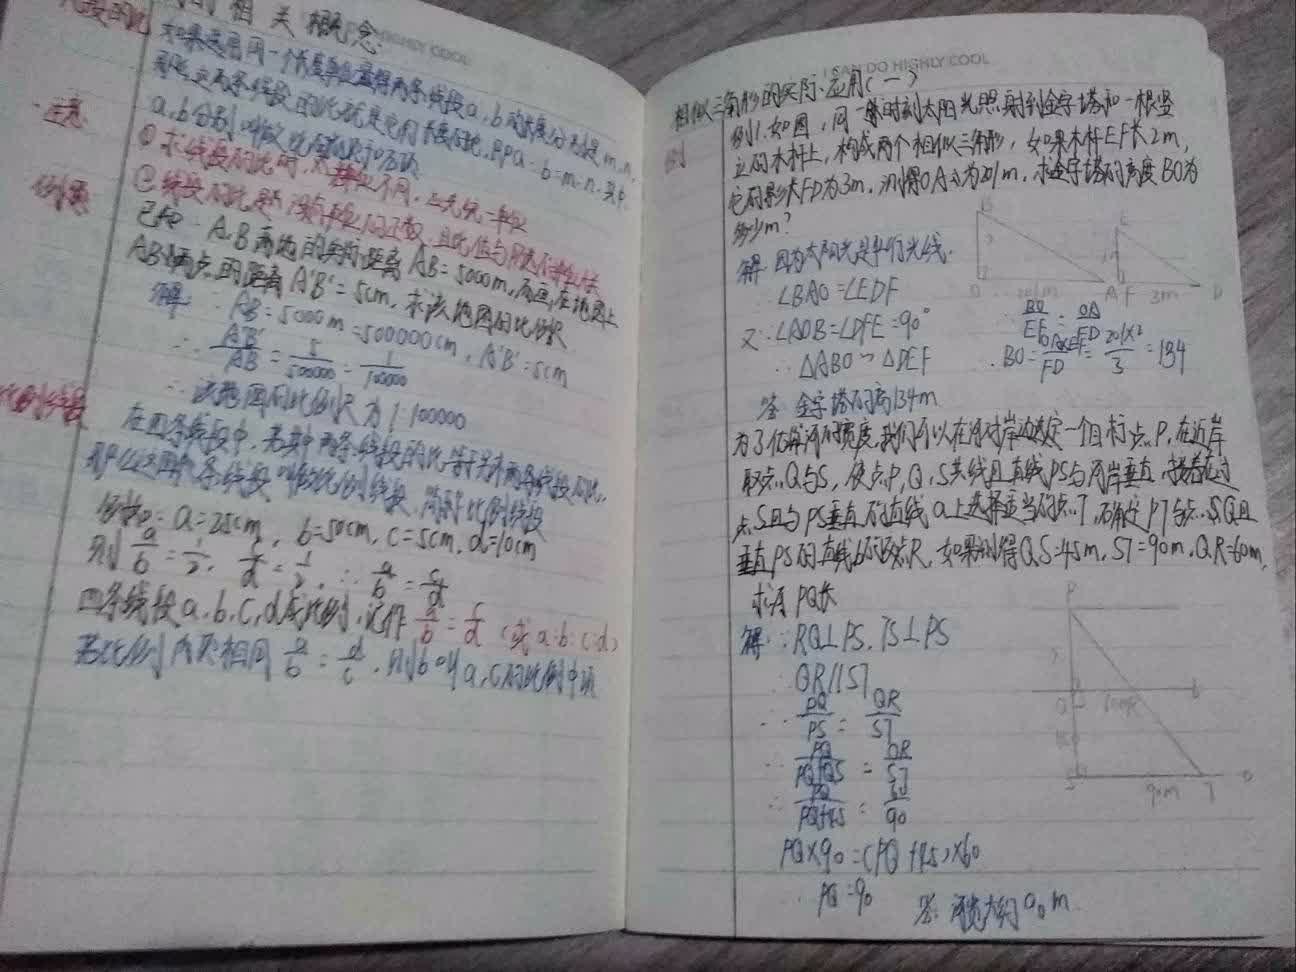 的相关概念:
HIGHLY COOL
线段的比
如果选用同一个长度单位量得两条线段a,b的长度分别是m,n,
那么这两条线段的比就是它们长度的比,即a:b=m:n,其中
a,b分别叫做比的前项和后项
注意
①求线段的比时,若单位不同,应先统一单位
②线段的比是一个没有单位的正数,且比值与所选
例题
已知:A,B两地的实际距离AB=5000m,而画在地图上
AB两点的距离A'B'=5cm,求该地图的比例尺
解:∵AB=5000m=500000cm,A'B'=5cm
∴A'B'/AB=5/500000=1/100000
∴该地图的比例尺为1:100000
比例线段
在四条线段中,若其中两条线段的比等于另外两条线段的比,
那么这四条线段叫做成比例线段,简称比例线段
例如:a=25cm,b=50cm,c=5cm,d=10cm
则a/b=1/2,c/d=1/2,∴a/b=c/d
四条线段a,b,c,d成比例,记作a/b=c/d(或a:b=c:d)
若比例内项相同 ,则b叫a,c的比例中项
I CAN DO HIGHLY COOL
相似三角形的实际应用(一)
例
例1.如图,同一时刻太阳光照射到金字塔和一根竖
立的木杆上,构成两个相似三角形,如果木杆EF长2m,
它的影长FD为3m,测得OA为201m,求金字塔的高度BO为
多少m?
B E
O 201m A F 3m D
解:因为太阳光是平行光线.
∠BAO=∠EDF
又∵∠AOB=∠DFE=90°
∴△ABO∽△DEF
∴BO/EF=OA/FD
∴BO=OA×EF/FD=201×2/3=134
答:金字塔的高134m
为了估算河的宽度,我们可以在河对岸选定一个目标点P,在近岸
取点Q与S,使点P,Q,S共线且直线PS与河岸垂直,接着在过
点S且与PS垂直的直线a上选择适当的点T,确定PT与过点Q且
垂直PS的直线b的交点R,如果测得QS=45m,ST=90m,QR=60m,
求 PQ长
P
Q 60m R b
S 90m T a
解:∵RQ⊥PS,TS⊥PS
∴QR//ST
∴PQ/PS=QR/ST
∴PQ/PQ+QS=QR/ST
∴PQ/PQ+45=60/90
PQ×90=(PQ+45)×60
∴PQ=90
答:河宽大约90m